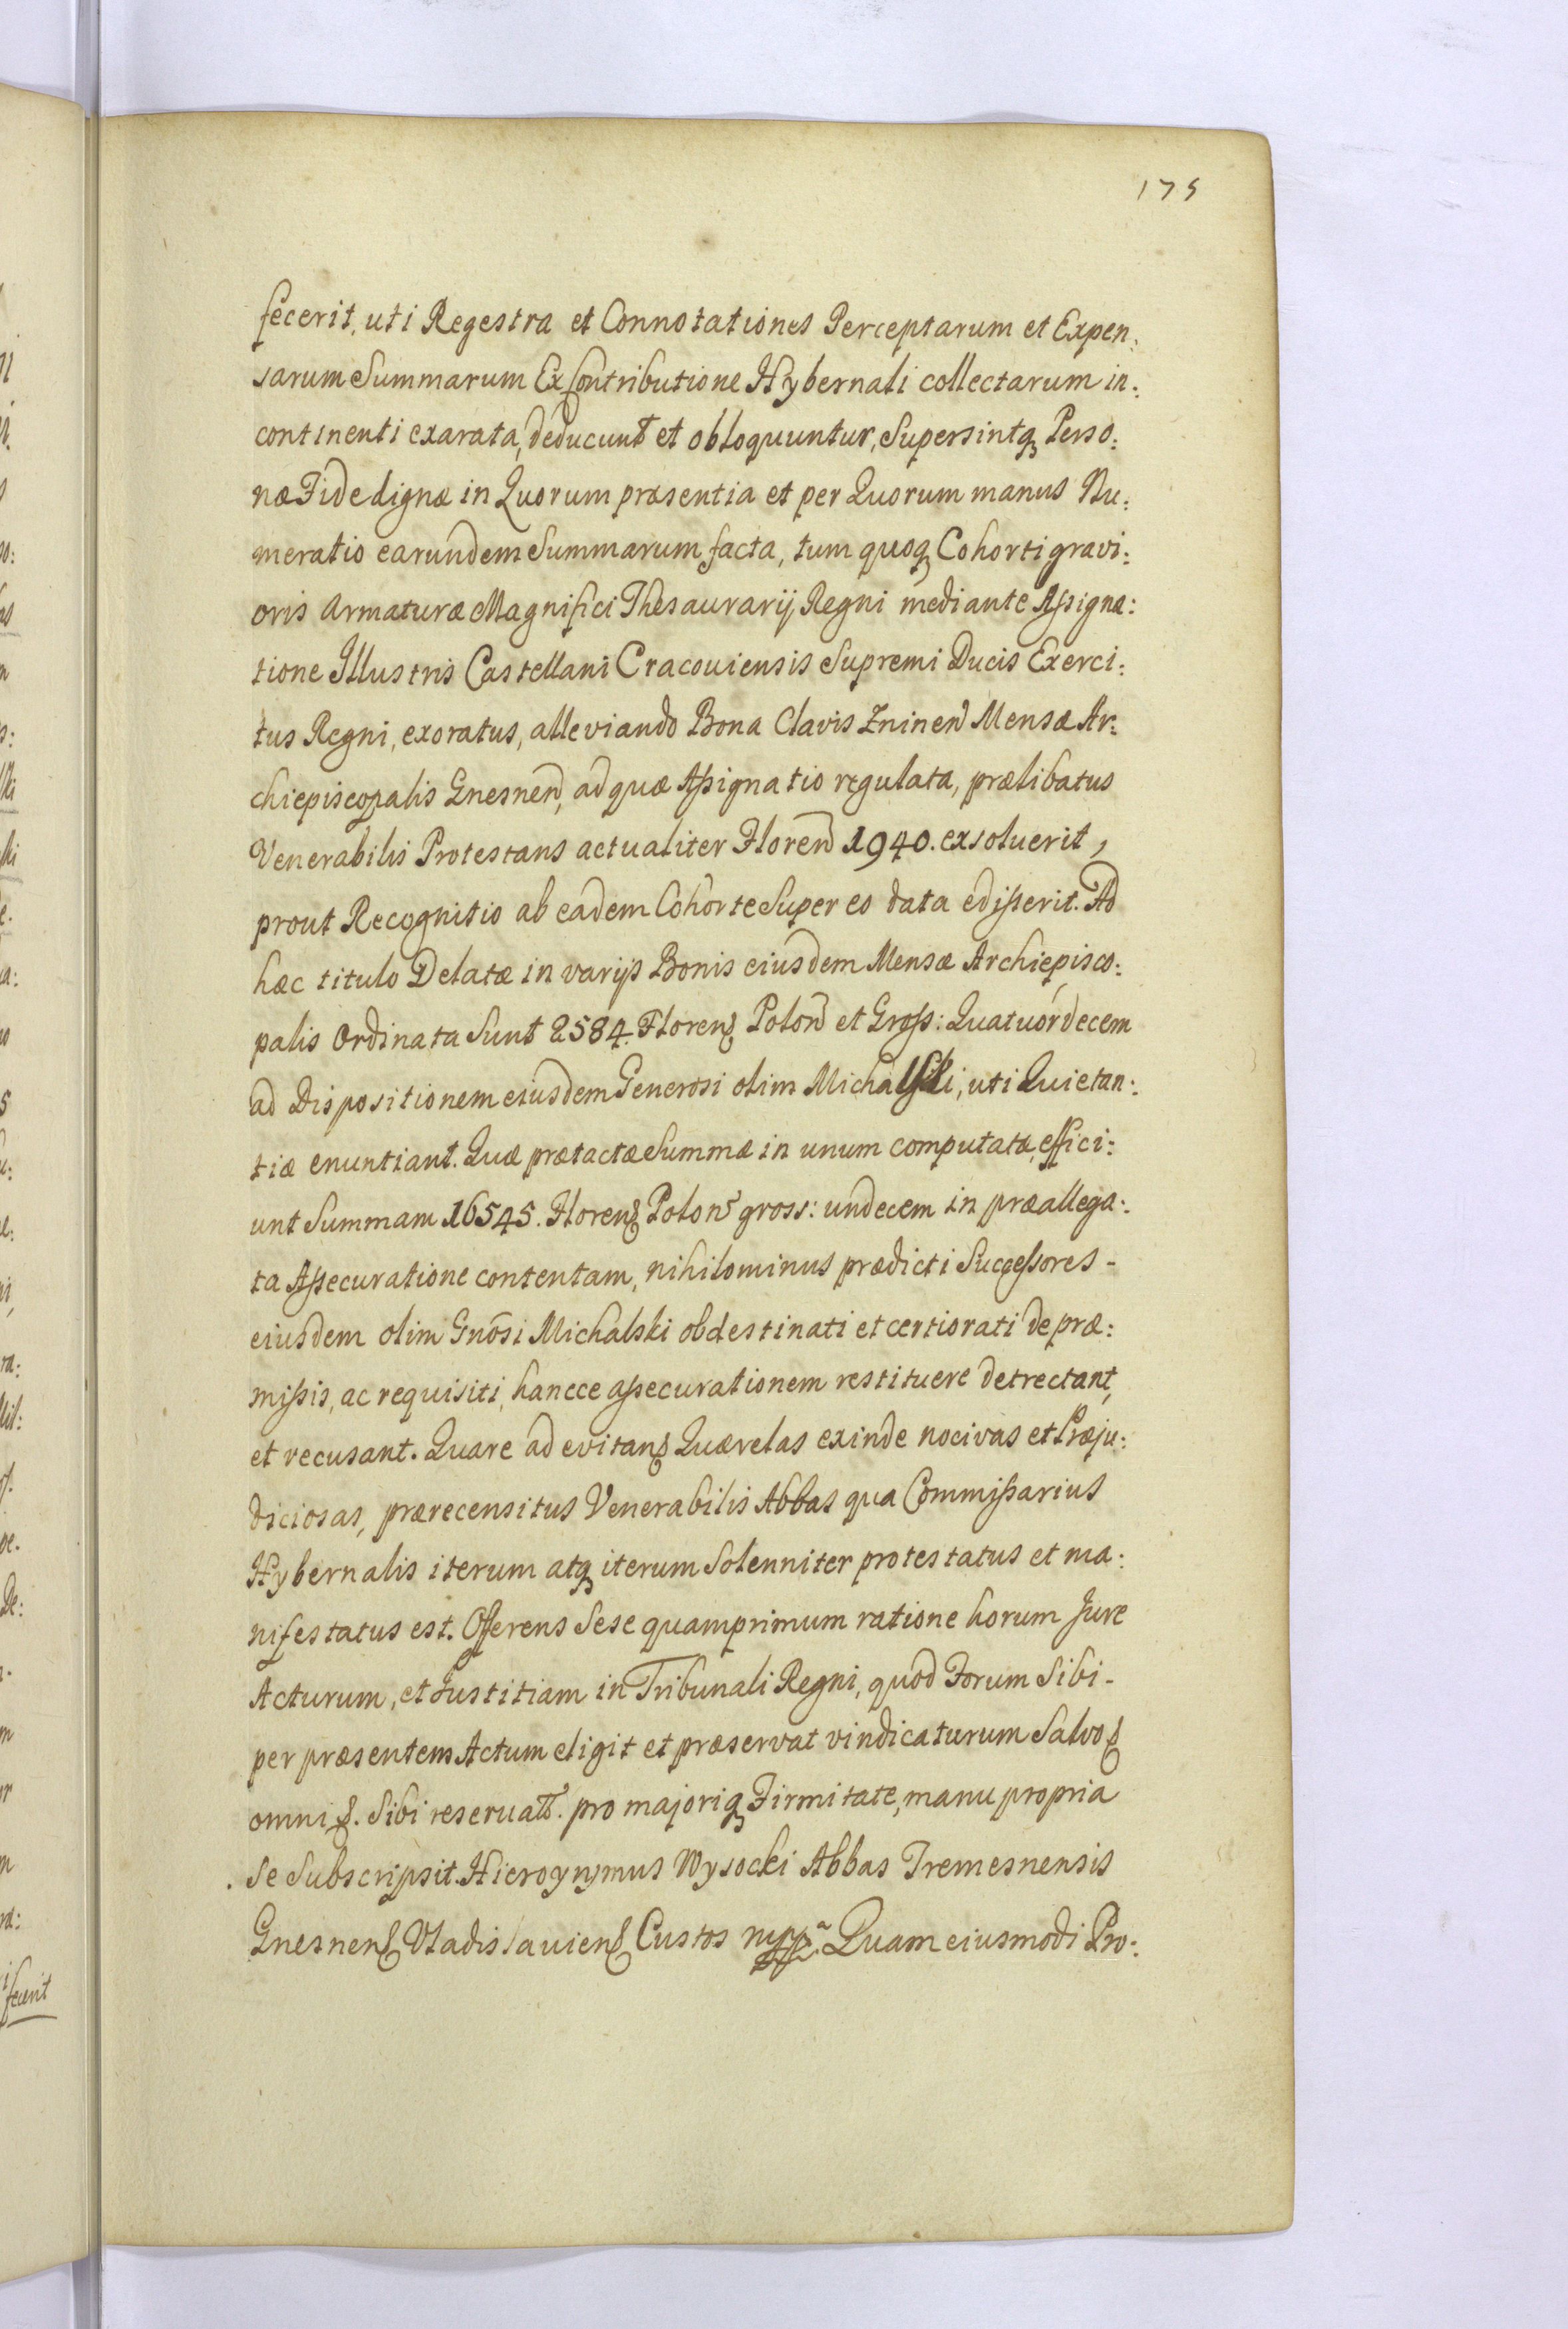 175
fecerit, uti Regestra et Connotationes Perceptarum et Expen:
sarum Summarum Ex Contributione Hybernali collectarum in:
continenti exarata, deducunt et obloquuntur, Supersintq₃ Perso:
næ Fide dignæ in Quorum præsentia et per Quorum manus Nu:
meratio earundem Summarum facta, tum quoq₃ Cohorti gravi:
oris Armaturæ Magnifici Thesaurarij Regni mediante Assigna:
tione Illustris Castellani Cracoviensis Supremi Ducis Exerci:
tus Regni, exoratus, alleviando Bona Clavis Zninen Mensæ Ar:
chiepiscopalis Gnesnen, ad quæ Assignatio regulata, prælibatus
Venerabilis Protestans actualiter Floren 1940. exsoluerit,
prout Recognitio ab eadem Cohorte Super eo data edisserit. Ad
hæc titulo Delatæ in varijs Bonis eiusdem Mensæ Archiepisco:
palis Ordinata Sunt 2584. Floren Polon et Gross: Quatuordecem
ad Dispositionem eiusdem Generosi olim Michalski, uti Quietan:
tiæ enuntiant. Quæ prætactæ Summæ in unum computatæ, effici:
unt Summam 16545. Floren Polon gross: undecem in præallega:
ta Assecuratione contentam, nihilominus prædicti Successores -
eiusdem olim Gnosi Michalski obdestinati et certiorati de præ:
missis, ac requisiti, hancce assecurationem restituere detrectant,
et recusant. Quare ad evitan Quærelas exinde nocivas et Præju:
diciosas, prærecensitus Venerabilis Abbas qua Commissarius
Hybernalis iterum atq₃ iterum Solenniter protestatus et ma:
nifestatus est. Offerens Sese quamprimum ratione horum Jure
Acturum, et Justitiam in Tribunali Regni, quod Forum Sibi -
per præsentem Actum eligit et præservat vindicaturum Salvo
omni. Sibi reseruatt. pro majoriq₃ Firmitate, manu propria
Se Subscripsit. Hieroynymus Wysocki Abbas Tremesnensis
Gnesnen Vladislauien Custos mpp. Quam eiusmodi Pro: